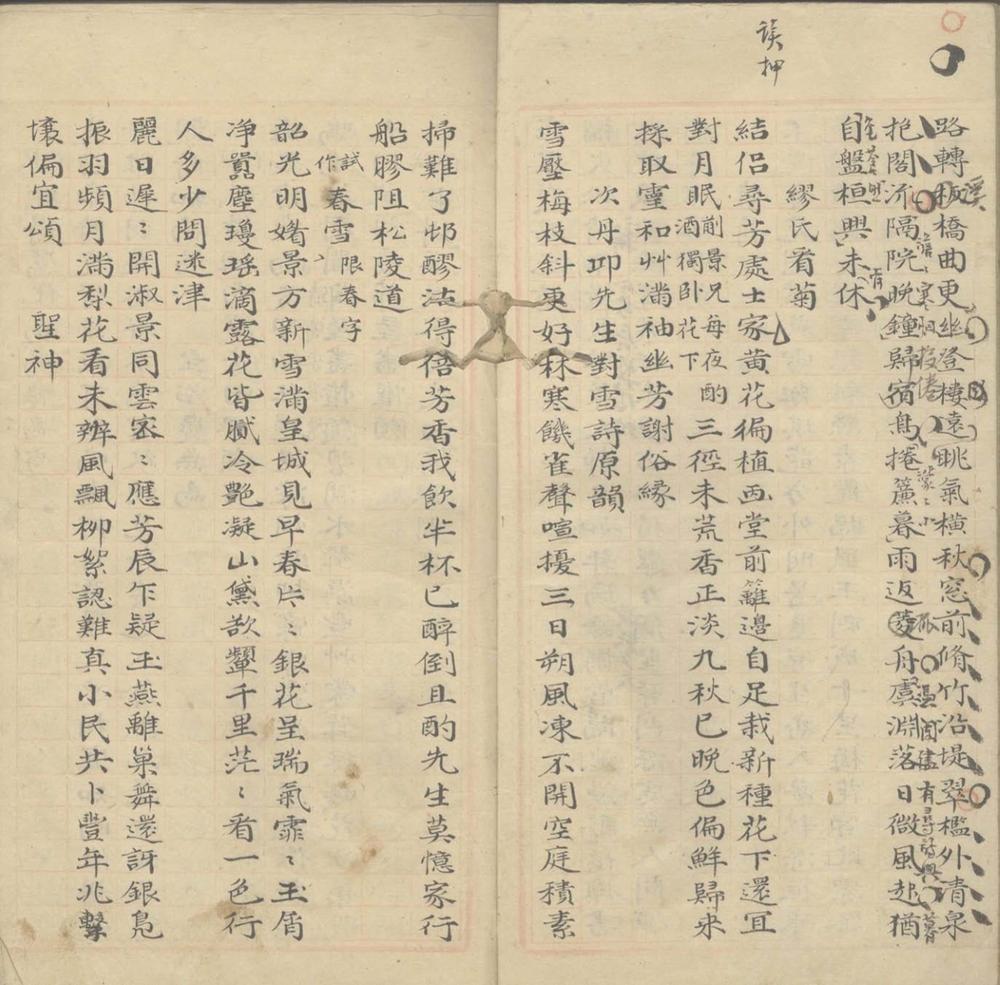 誤押
路轉板橋曲更幽登樓遠眺氣橫秋窓前脩竹沿堤翠檻外清泉
溪
抱閣流隔院晚鐘歸宿鳥捲簾暮雨返菱舟虞淵落日微風起猶
自盤桓興未休
繆氏看菊
結侶尋芳處士家黃花徧植画堂前籬邊自足栽新種花下還宜
對月眠前景兄每夜酌酒獨卧花下三徑未荒香正淡九秋已晚色偏鮮歸來
採取靈和艸滿袖幽芳謝俗緣
次丹卭先生對雪詩原韻
雪壓梅枝斜更好林寒饑雀聲喧擾三日朔風凍不開空庭積素
掃難了邨醪沽得蓓芳香我飲半杯已醉倒且酌先生莫憶家行
船膠阻松陵道
試作春雪限春字
韶光明媚景方新雪滿皇城見早春片〻銀花呈瑞氣霏〻玉屑
淨囂塵瓊瑤滴露花皆膩冷艷凝山黛欲顰千里茫〻看一色行
人多少問迷津
麗日遲〻開淑景同雲密〻應芳辰乍疑玉燕離巢舞還訝銀鳧
振羽頻月滿梨花看未辨風飄柳絮認難真小民共卜豐年兆擊
壤偏宜頌聖神